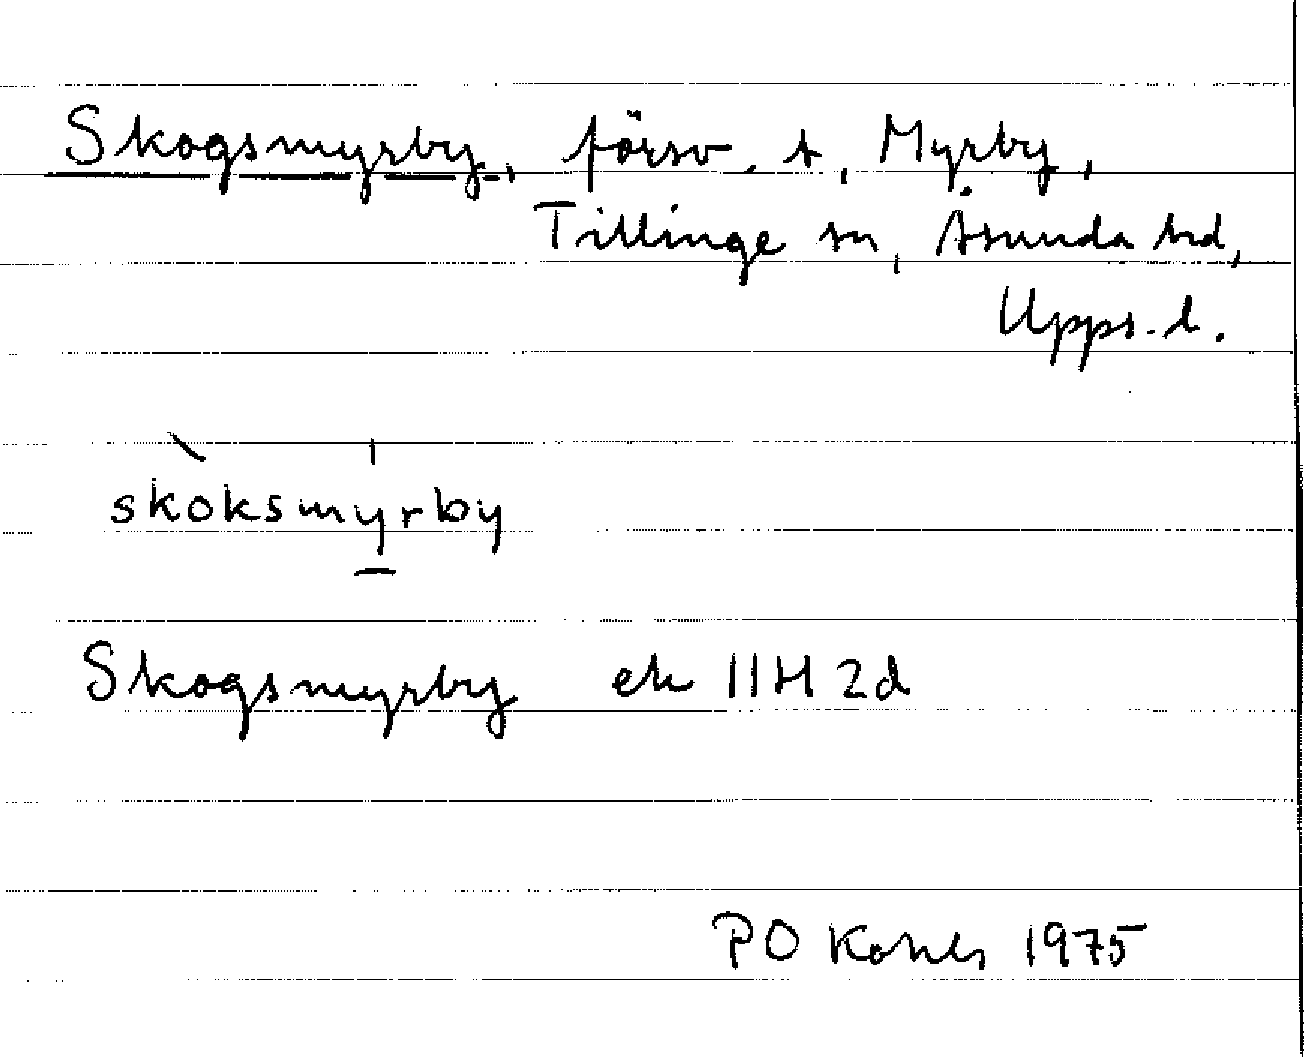 Skogsmyrby, försv. t. Myrby,
Tillinge sn, Åsunda hd,
Upps. l.
skoksmyrby
Skogsmyrby ek 11H 2d
PO 1975